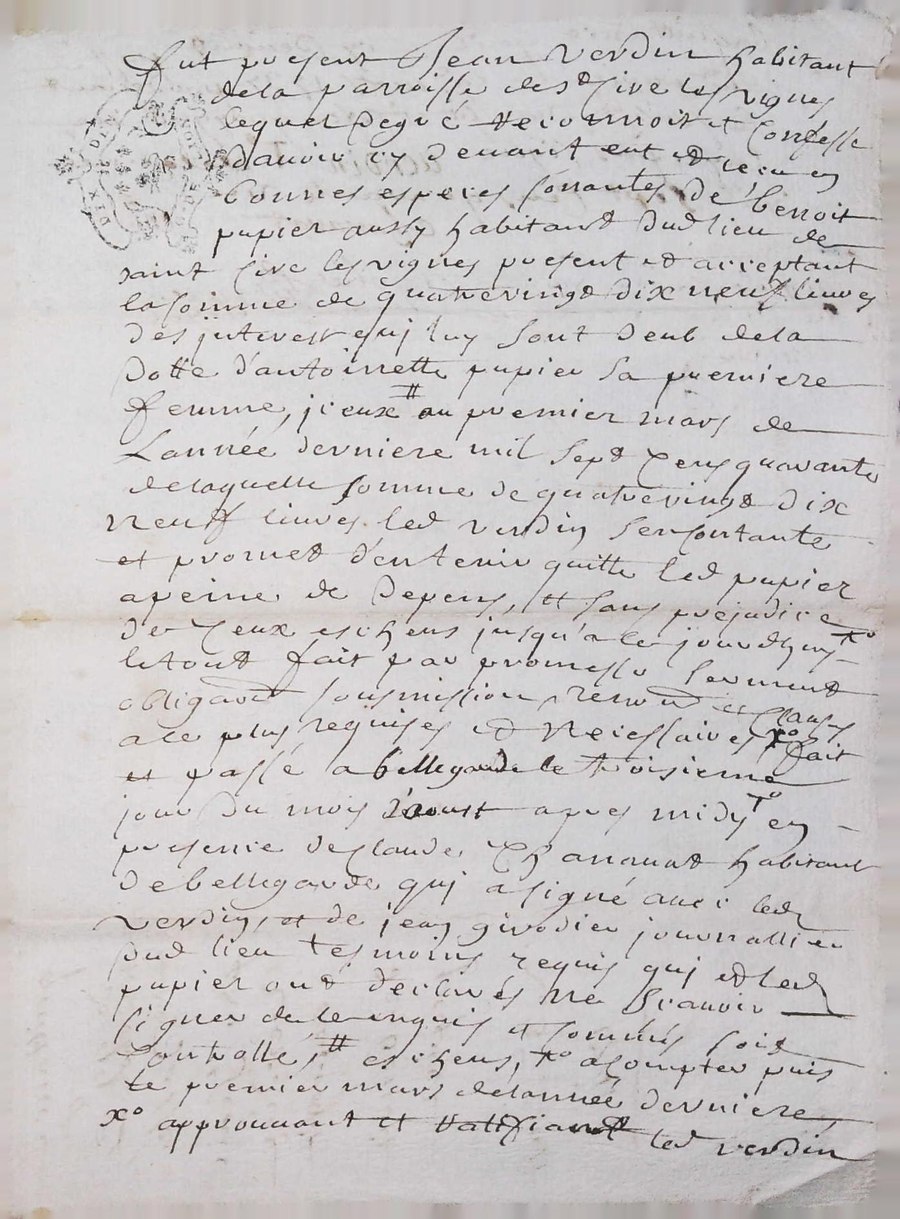 fut present Jean Verdin habitant
dela parroisse de st Cire les vignes
lequel de gré reconnoit et confesse
davoir cy devant eut et receu en
bonnes especes sonnantes de benoit
pupier aussy habitant dud lieu de
saint Cire les vignes present et acceptant
la somme de quatrevingt dix neuf livres
des jnterest quj luy sont deub dela
dotte d'antoinette pupier sa premiere
femme, jceux # au premier mars de
Lannée derniere mil sept cens quarante
delaquelle somme de quatrevingt dix
neuf livres led verdin sen contante
et promet d'en tenir quitte led pupier
a peine de depens, et sans prejudice
de ceux eschens jusqu'a ce jourdhuy xo
le tout fait par promesse serment
obligaon sousmission renon et clauses
a ce plus requises et necessaires xo fait
et passé a bellegarde le troisieme
jour du mois d'aoust apres midy en
presence de Claude Chananat habitant
de bellegarde quj a signé avec led
verdin, et de jean girodier journallier
dud lieu tesmoins requis quj et led
pupier ont declarés ne scavoir
signer de ce enquis et sommés soit
controllé, # eschens, xo a compter puis
le premier mars delannée derniere
xo approuvant et ratifiant led verdin